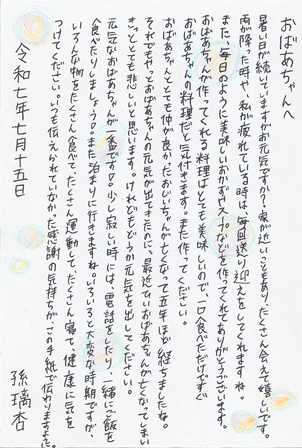 おばあちゃんへ
暑い日が続いていますがお元気ですか？家が近いこともあり、たくさん会えて嬉しいです。
雨が降った時や、私が疲れている時は毎回送り迎えをしてくれますね。
また、毎日のように美味しいおかずやスープなどを作ってくれてありがとうございます。
おばあちゃんが作ってくれる料理はとても美味しいので、一口食べただけですぐ
おばあちゃんの料理だと気付きます。また作ってください。
おばあちゃんととても仲が良かったおじいちゃんが亡くなって五年ほど経ちましたね。
それでもやっとおばあちゃんの元気が出てきたのに、最近ひいおばあちゃんが亡くなってしまい
きっととても悲しいと思います。けれどもどうか元気を出してください。
元気なおばあちゃんが一番です。少し寂しい時には、電話をしたり一緒にご飯を
食べたりしましょう。また泊まりに行きますね。いろいろと大変な時期ですが、
いろんな物をたくさん食べて、たくさん運動して、たくさん寝て、健康に気を
つけてください。いつも伝えられていなかった感謝の気持ちが、この手紙で伝わりますように。
令和七年七月十五日
孫 瑀杏